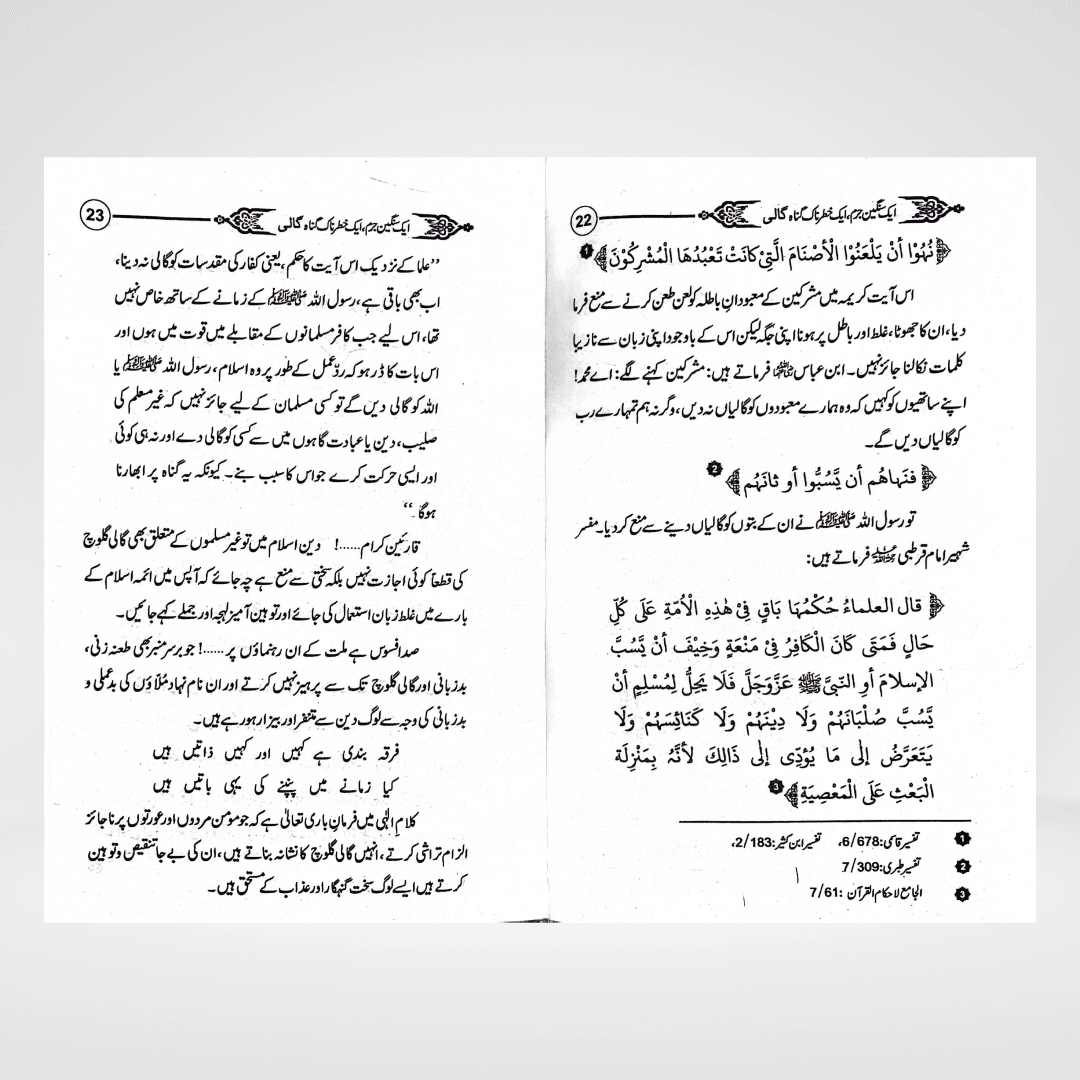 22 ایک سنگین جرم، ایک خطرناک گناہ گالی
﴿نُهُوْا أَنْ یَلْعَنُوْا الْأَصْنَامَ الَّتِیْ کَانَتْ تَعْبُدُهَا الْمُشْرِکُوْنَ﴾ ❶
اس آیت کریمہ میں مشرکین کے معبودانِ باطلہ کو لعن طعن کرنے سے منع فرما
دیا، ان کا جھوٹا، غلط اور باطل پر ہونا اپنی جگہ لیکن اس کے باوجود اپنی زبان سے نازیبا
کلمات نکالنا جائز نہیں۔ ابن عباس رضی اللہ عنہما فرماتے ہیں: مشرکین کہنے لگے: اے محمد!
اپنے ساتھیوں کو کہیں کہ وہ ہمارے معبودوں کو گالیاں نہ دیں، وگرنہ ہم تمہارے رب
کو گالیاں دیں گے۔
﴿فنَهاهُم أن یَّسُبُّوا أو ثانَهُم﴾ ❷
تو رسول اللہ ﷺ نے ان کے بتوں کو گالیاں دینے سے منع کر دیا۔ مفسر
شہیر امام قرطبی رحمہ اللہ فرماتے ہیں:
﴿قال العلماءُ حُکْمُهَا بَاقٍ فِیْ هٰذِهِ الْاُمّةِ عَلَی کُلِّ
حَالٍ فَمَتَی کَانَ الْکَافِرُ فِیْ مَنْعَةٍ وَخِیْفَ أنْ یَّسُبَّ
الإسلامَ أوِ النّبیَّ ﷺ عَزَّوَجَلَّ فَلَا یَحِلُّ لِمُسْلِمٍ أنْ
یَّسُبَّ صُلْبَانَهُمْ وَلَا دِیْنَهُمْ وَلَا کَنَائِسَهُمْ وَلَا
یَتَعَرَّضُ إلٰی مَا یُؤَدِّی إلٰی ذَالِکَ لأنَّهُ بِمَنْزِلَة
الْبَعْثِ عَلَی الْمَعْصِیَةِ﴾ ❸
❶ تفسیر قاسمی: 6/678، تفسیر ابن کثیر: 2/183،
❷ تفسیر طبری: 7/309
❸ الجامع لاحکام القرآن: 7/61
23 ایک سنگین جرم، ایک خطرناک گناہ گالی
”علما کے نزدیک اس آیت کا حکم، یعنی کفار کی مقدسات کو گالی نہ دینا،
اب بھی باقی ہے، رسول اللہ ﷺ کے زمانے کے ساتھ خاص نہیں
تھا، اس لیے جب کافر مسلمانوں کے مقابلے میں قوت میں ہوں اور
اس بات کا ڈر ہو کہ ردِّعمل کے طور پر وہ اسلام، رسول اللہ ﷺ یا
اللہ کو گالی دیں گے تو کسی مسلمان کے لیے جائز نہیں کہ غیر مسلم کی
صلیب، دین یا عبادت گاہوں میں سے کسی کو گالی دے اور نہ ہی کوئی
اور ایسی حرکت کرے جو اس کا سبب بنے۔ کیونکہ یہ گناہ پر ابھارنا
ہوگا۔“
قارئین کرام......! دین اسلام میں تو غیر مسلموں کے متعلق بھی گالی گلوچ
کی قطعاً کوئی اجازت نہیں بلکہ سختی سے منع ہے چہ جائے کہ آپس میں ائمہ اسلام کے
بارے میں غلط زبان استعمال کی جائے اور توہین آمیز لہجہ اور جملے کہے جائیں۔
صد افسوس ہے ملت کے ان رہنماؤں پر......! جو برسرِ منبر بھی طعنہ زنی،
بدزبانی اور گالی گلوچ تک سے پرہیز نہیں کرتے اور ان نام نہاد مُلّاؤں کی بدعملی و
بدزبانی کی وجہ سے لوگ دین سے متنفر اور بیزار ہو رہے ہیں۔
فرقہ بندی ہے کہیں اور کہیں ذاتیں ہیں
کیا زمانے میں پنپنے کی یہی باتیں ہیں
کلامِ الٰہی میں فرمانِ باری تعالیٰ ہے کہ جو مومن مردوں اور عورتوں پر ناجائز
الزام تراشی کرتے، انہیں گالی گلوچ کا نشانہ بناتے ہیں، ان کی بے جا تنقیص و توہین
کرتے ہیں ایسے لوگ سخت گنہگار اور عذاب کے مستحق ہیں۔